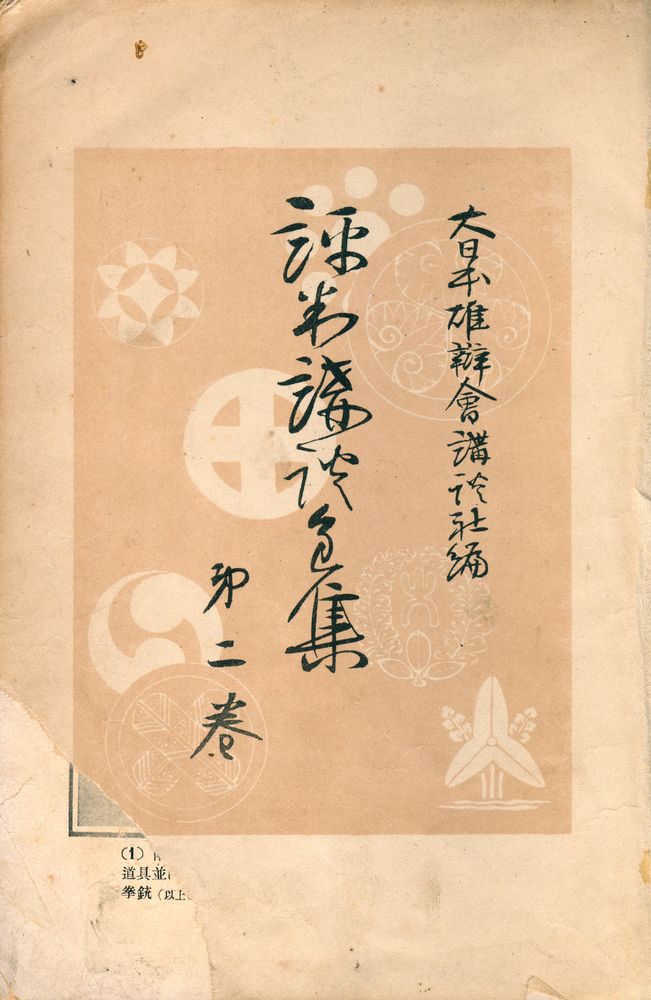 大日本雄辯會講談社編
評判講談全集
第二卷
(1)
道具並
拳銃（以上